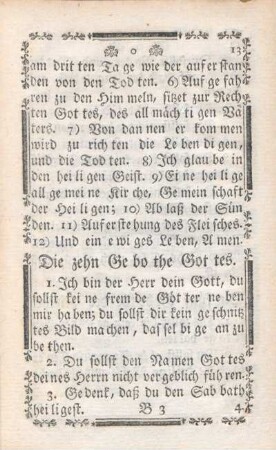 o 13
am drit ten Ta ge wie der auf er stan
den von den Tod ten. 6) Auf ge fah
ren zu den Him meln, sitzet zur Rech
ten Got tes, des all mäch ti gen Va
ters. 7) Von dan nen er kom men
wird zu rich ten die Le ben di gen,
und die Tod ten. 8) Ich glau be in
den hei li gen Geist. 9) Ei ne hei li ge
all ge mei ne Kir che, Ge mein schaft
der Hei li gen; 10) Ab laß der Sün
den. 11) Auf er ste hung des Flei sches.
12) Und ein e wi ges Le ben, A men.
Die zehn Ge bo the Got tes.
1. Ich bin der Herr dein Gott, du
sollst kei ne frem de Göt ter ne ben
mir ha ben; du sollst dir kein ge schnitz
tes Bild ma chen, das sel bi ge an zu be
then.
2. Du sollst den Na men Got tes
dei nes Herrn nicht ver geb lich füh ren.
3. Ge denk, daß du den Sab bath
hei li gest. B 3 4.